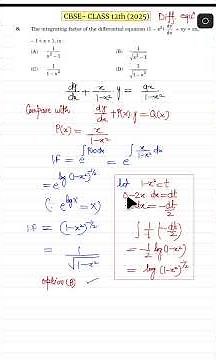 CBSE- CLASS 12th (2025) Diff. eqⁿ
8. The integrating factor of the differential equation (1 – x²) dy/dx + xy = ax,
– 1 < x < 1, is :
(A) 1/(x² – 1) (B) 1/√(x² – 1)
(C) 1/(1 – x²) (D) 1/√(1 – x²)
dy/dx + x/(1-x²) y = ax/(1-x²)
Compare with dy/dx + P(x) y = Q(x)
P(x) = x/(1-x²)
I.F = e^∫P(x)dx = e^∫x/(1-x²) dx
= e^log(1-x²)^-1/2
(∵ e^logx = x)
I.F = (1-x²)^-1/2
= 1/√(1-x²)
let 1-x² = t
-2x dx = dt
x dx = -dt/2
∫ 1/t (-dt/2)
= -1/2 log(1-x²)
= log (1-x²)^-1/2